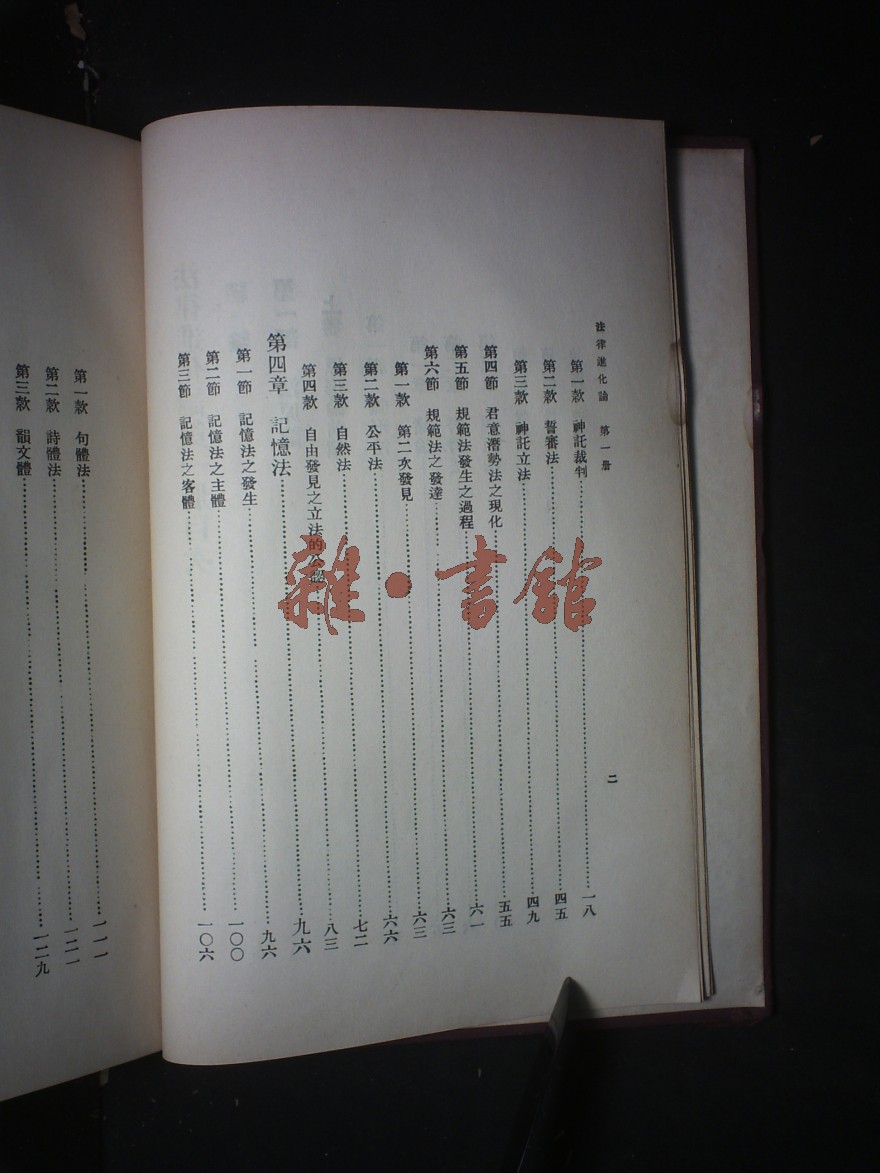 法律進化論 第一册
二
第一款 神託裁判……一八
第二款 誓審法……四五
第三款 神託立法……四九
第四節 君意潛勢法之現化……五五
第五節 規範法發生之過程……六一
第六節 規範法之發達……六三
第一款 第二次發見……六三
第二款 公平法……六六
第三款 自然法……七二
第四款 自由發見之立法的公……八三
第四章 記憶法……九六
第一節 記憶法之發生……九六
第二節 記憶法之主體……一〇〇
第三節 記憶法之客體……一〇六
第一款 句體法……一一一
第二款 詩體法……一二一
第三款 韻文體……一二九
雜·書館